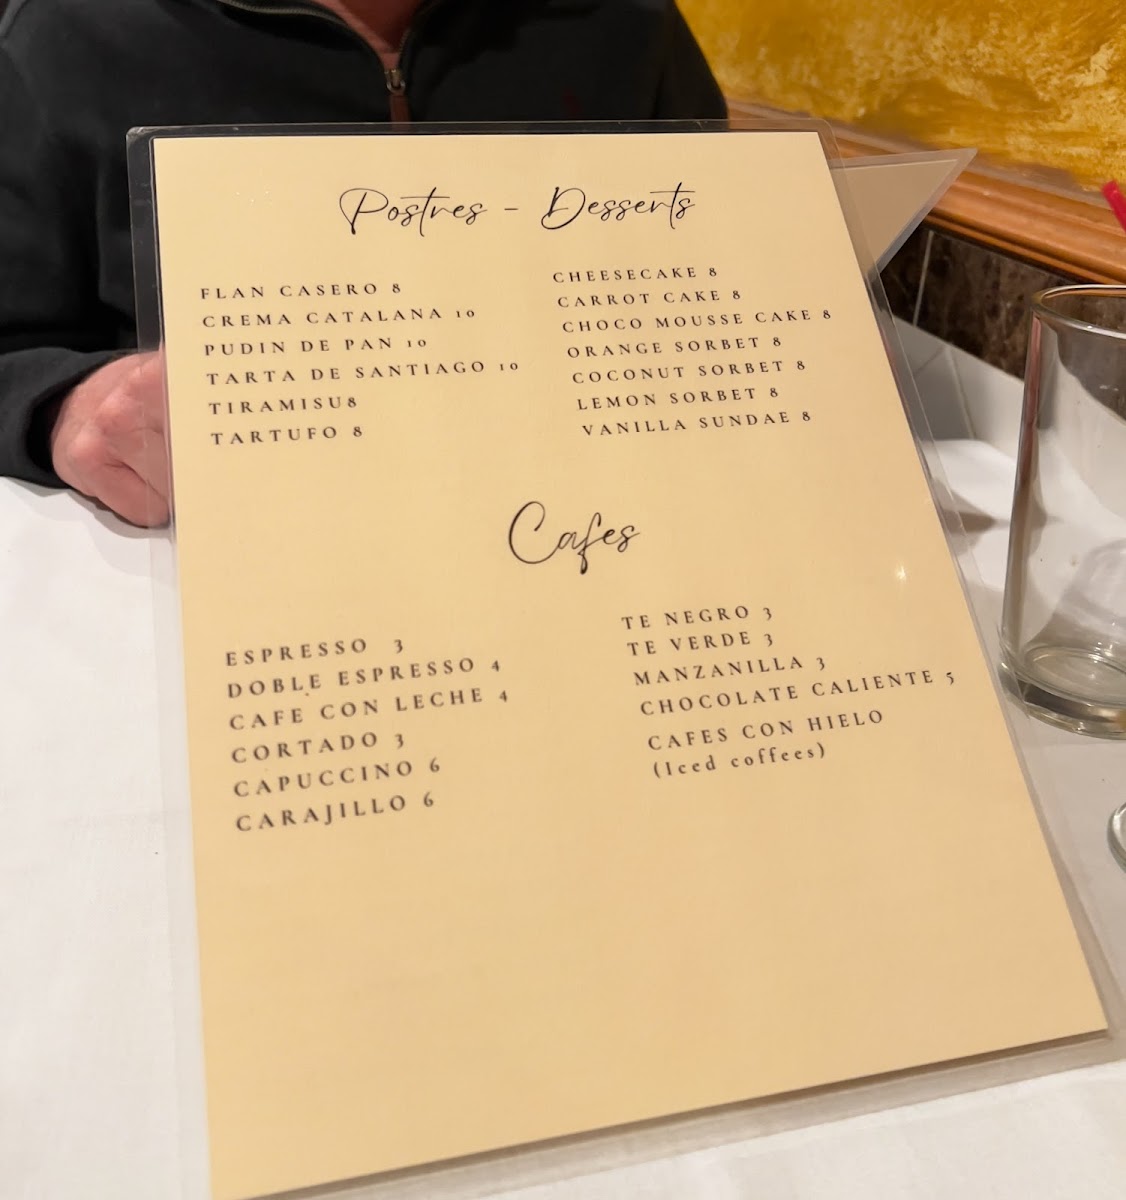 Postres - Desserts
FLAN CASERO 8
CREMA CATALANA 10
PUDIN DE PAN 10
TARTA DE SANTIAGO 10
TIRAMISU8
TARTUFO 8
CHEESECAKE 8
CARROT CAKE 8
CHOCO MOUSSE CAKE 8
ORANGE SORBET 8
COCONUT SORBET 8
LEMON SORBET 8
VANILLA SUNDAE 8
Cafes
ESPRESSO 3
DOBLE ESPRESSO 4
CAFE CON LECHE 4
CORTADO 3
CAPUCCINO 6
CARAJILLO 6
TE NEGRO 3
TE VERDE 3
MANZANILLA 3
CHOCOLATE CALIENTE 5
CAFES CON HIELO
(Iced coffees)